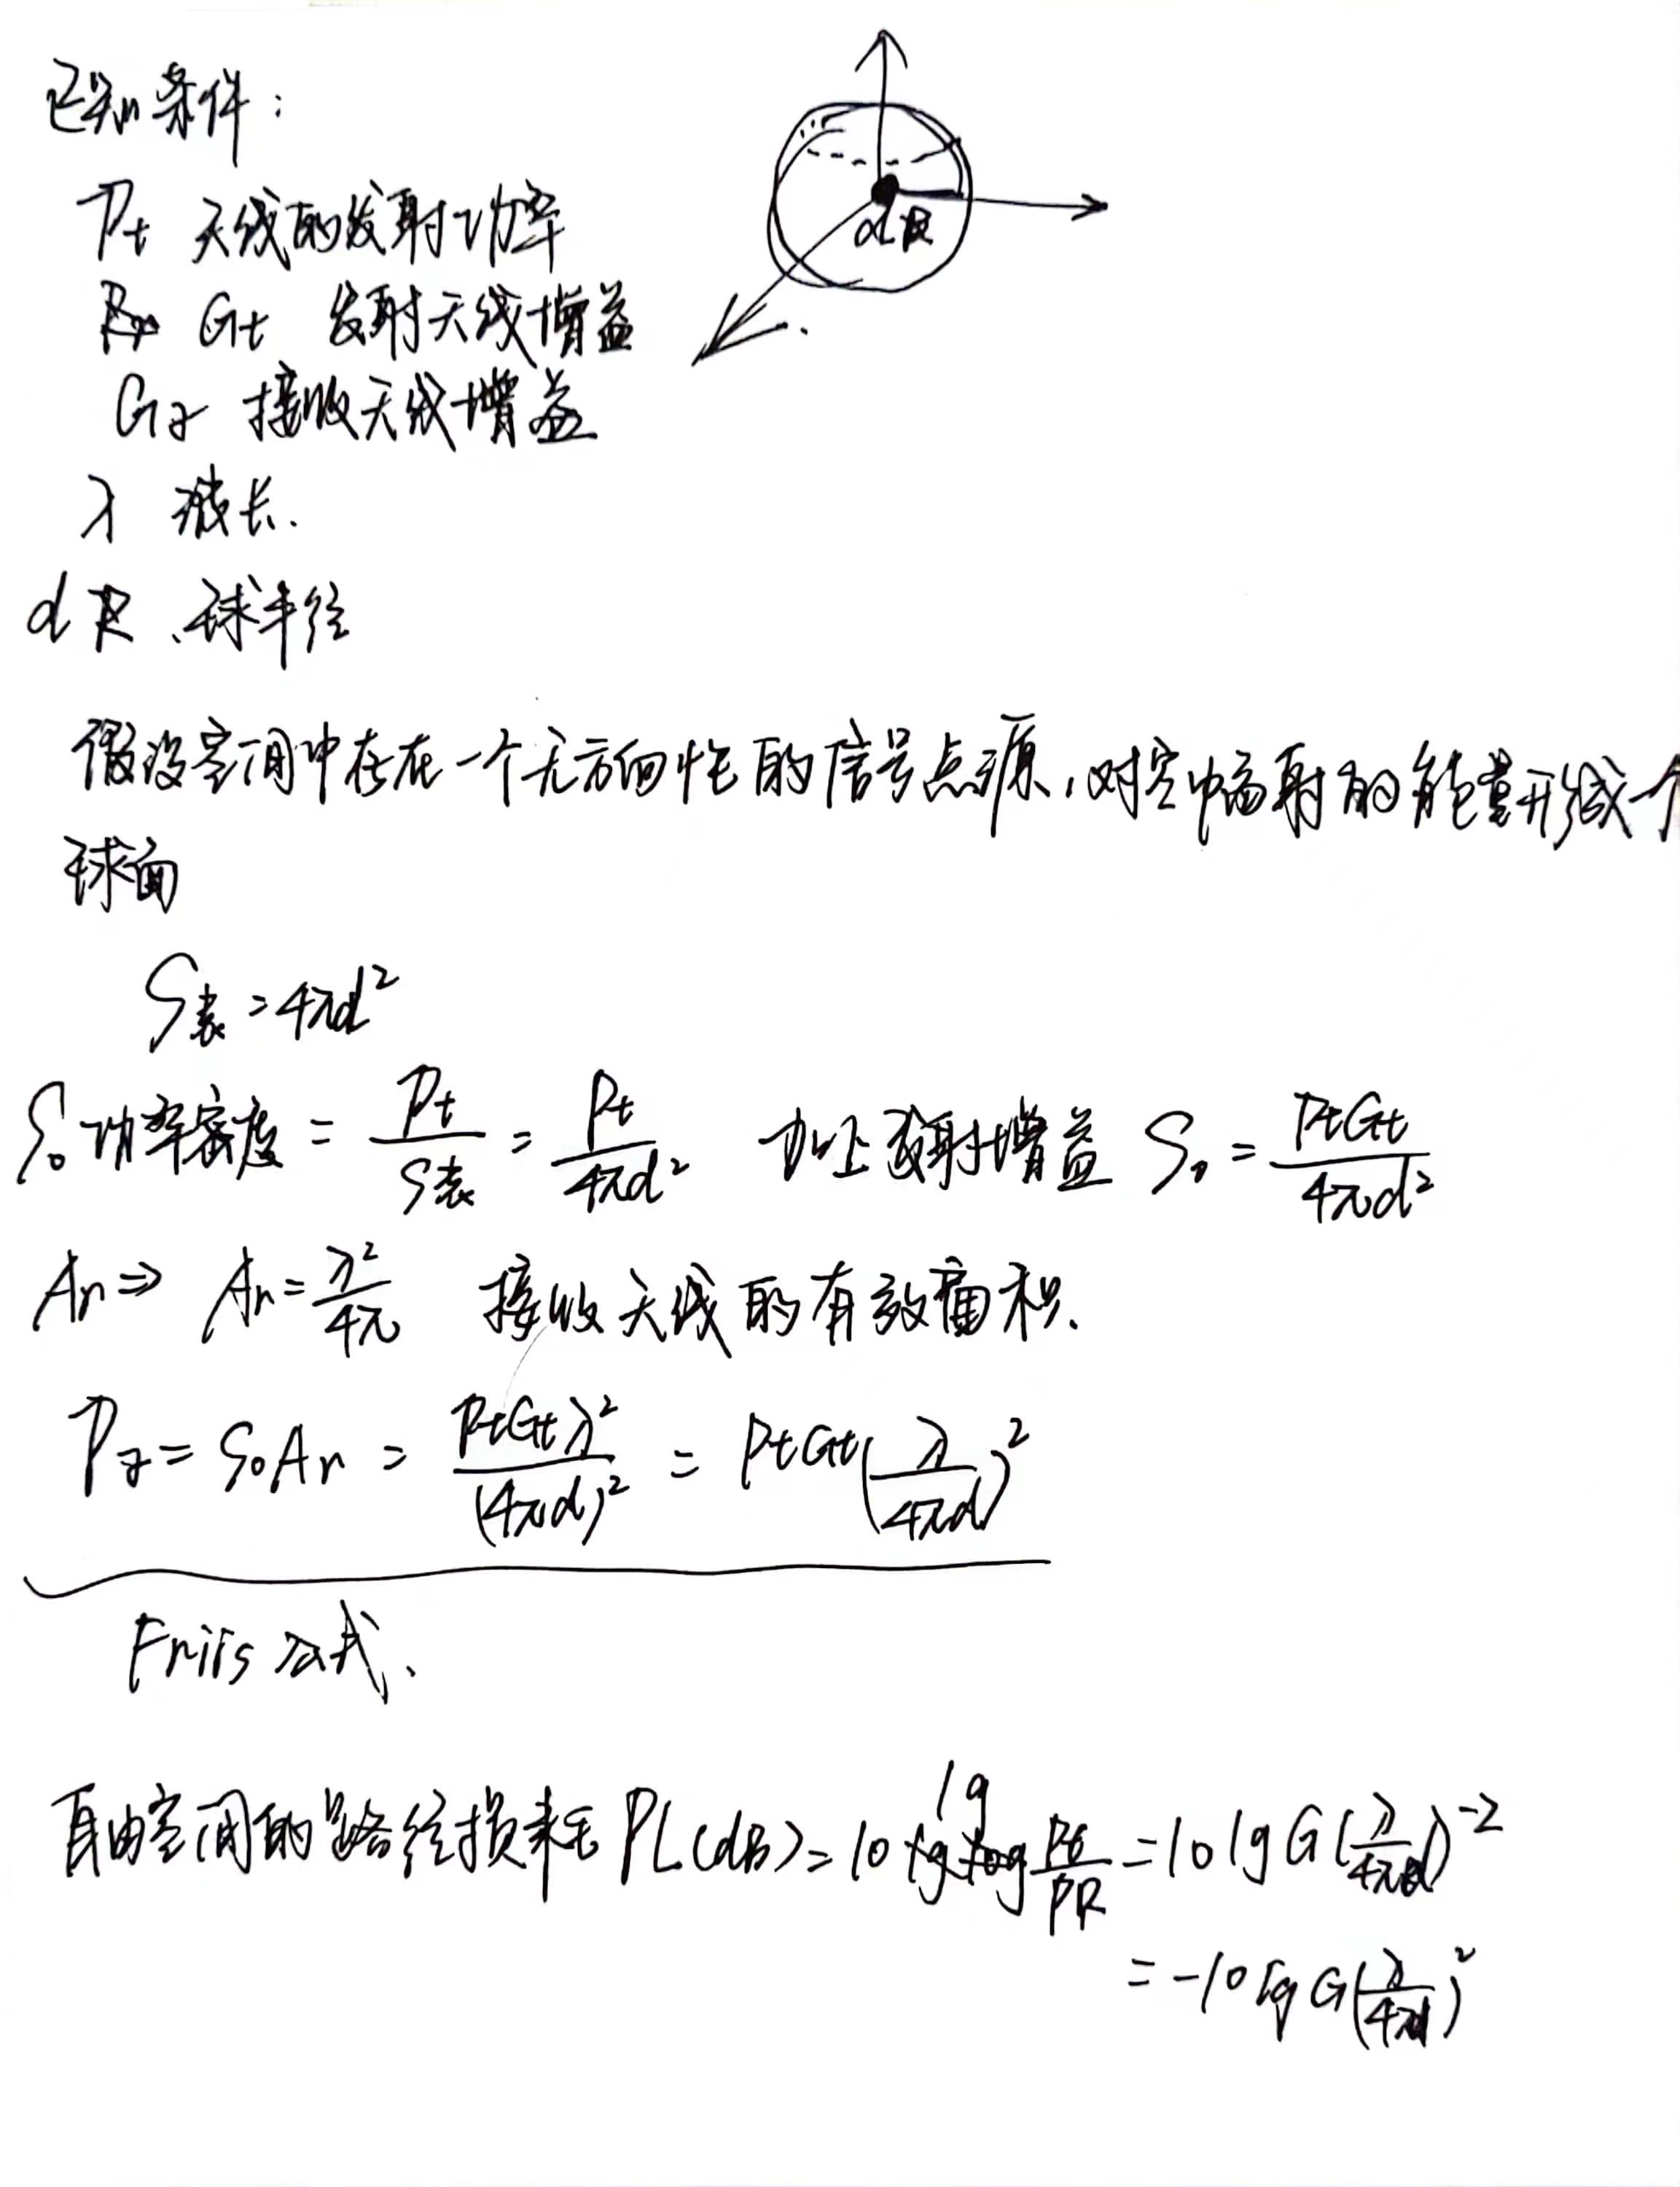 已知条件：
Pt 天线的发射功率
Gt 发射天线增益
Gr 接收天线增益
λ 波长.
d R、球半径
dR
假设空间中存在一个无方向性的信号点源，对空中辐射的能量形成一个
球面
S表 = 4πd²
S₀功率密度 = Pt/S表 = Pt/4πd² 加上发射增益 S₀ = PtGt/4πd²
Ar ⇒ Ar = λ²/4π 接收天线的有效面积.
Pr = S₀Ar = PtGtλ²/(4πd)² = PtGt(λ/4πd)²
Friis公式.
自由空间的路径损耗 PL(dB) = 10 lg Pt/PR = 10 lg G(λ/4πd)⁻²
= -10 lg G(λ/4πd)²